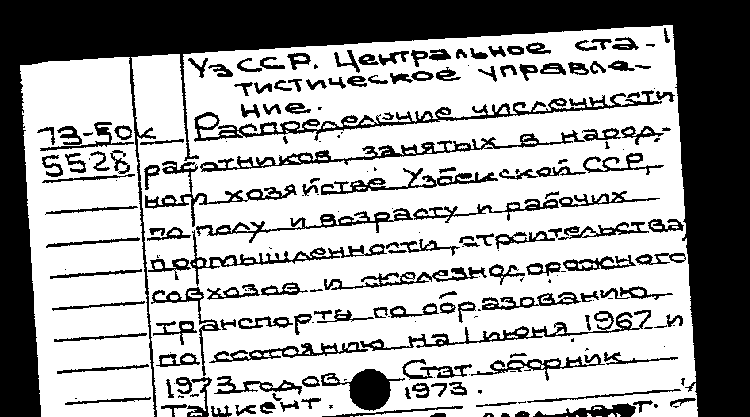 УзССР. Центральное ста-
тистическое управле-
ние.
73-50к Распределение численности
5528 работников, занятых в народ-
ном хозяйстве Узбекской ССР,
по полу и возрасту и рабочих
промышленности, строительства,
совхозов и железнодорожного
транспорта по образованию,
по состоянию на 1 июня 1967 и
1973 годов. Стат. сборник.
Ташкент. 1973.